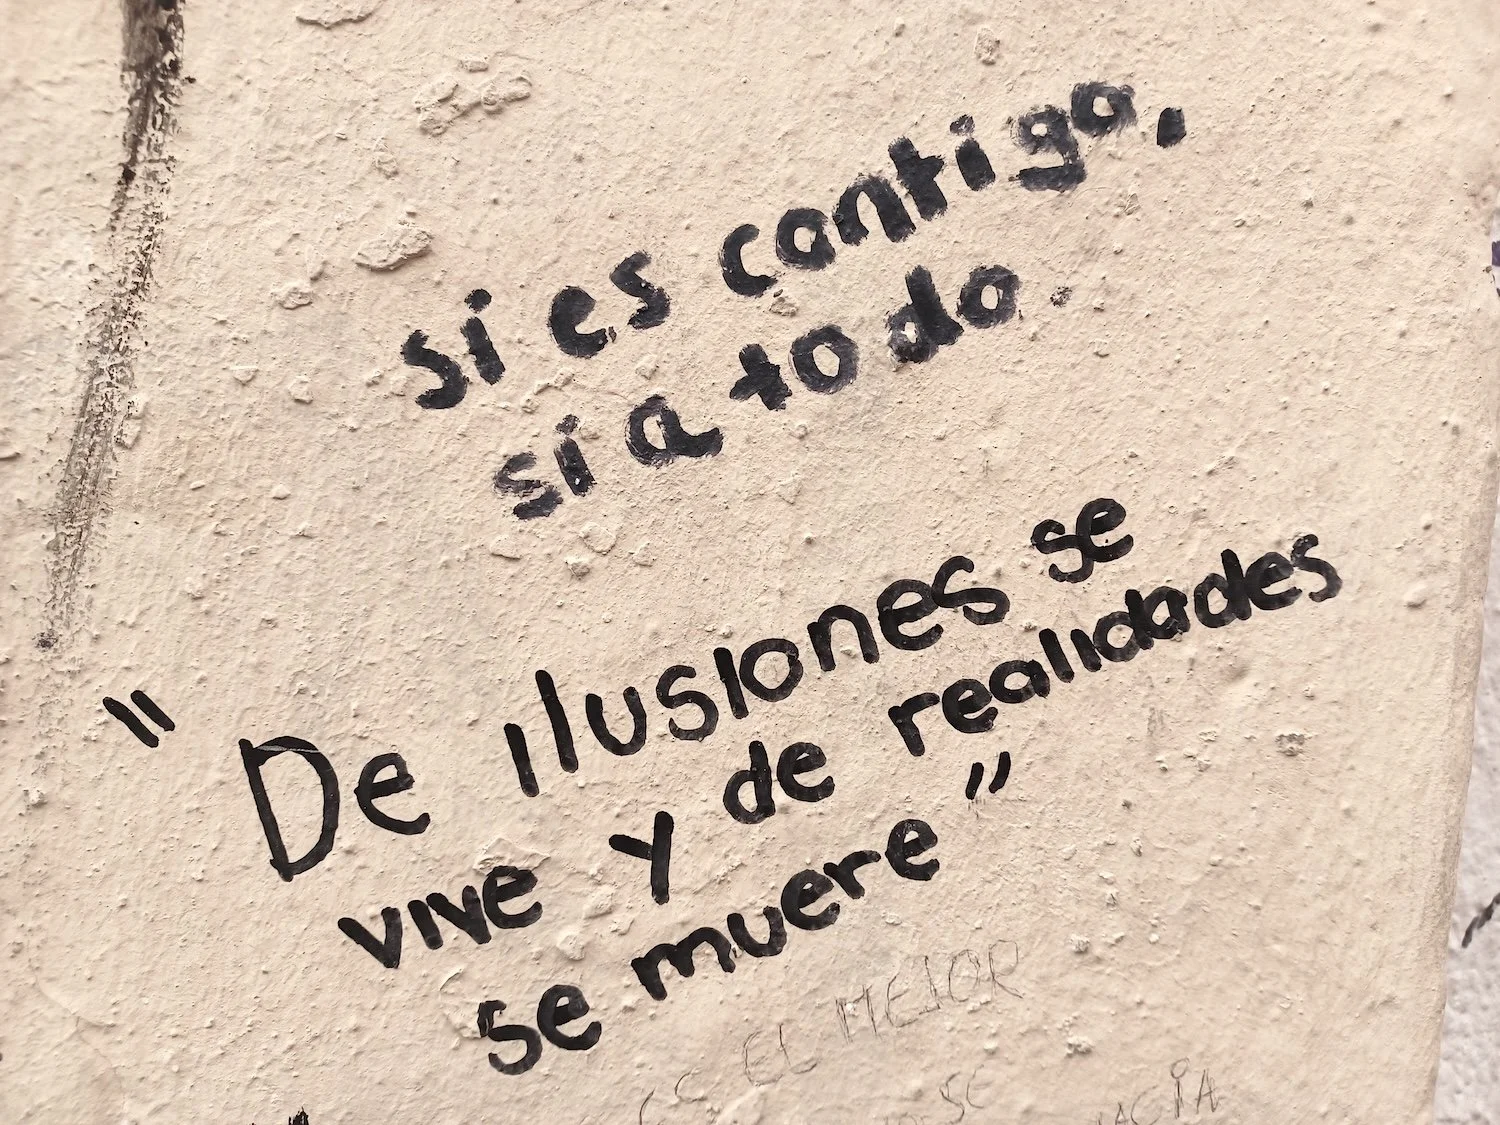 si es contigo,
si a todo.
"De ilusiones se
vive y de realidades
se muere"
EL MEJOR
SE